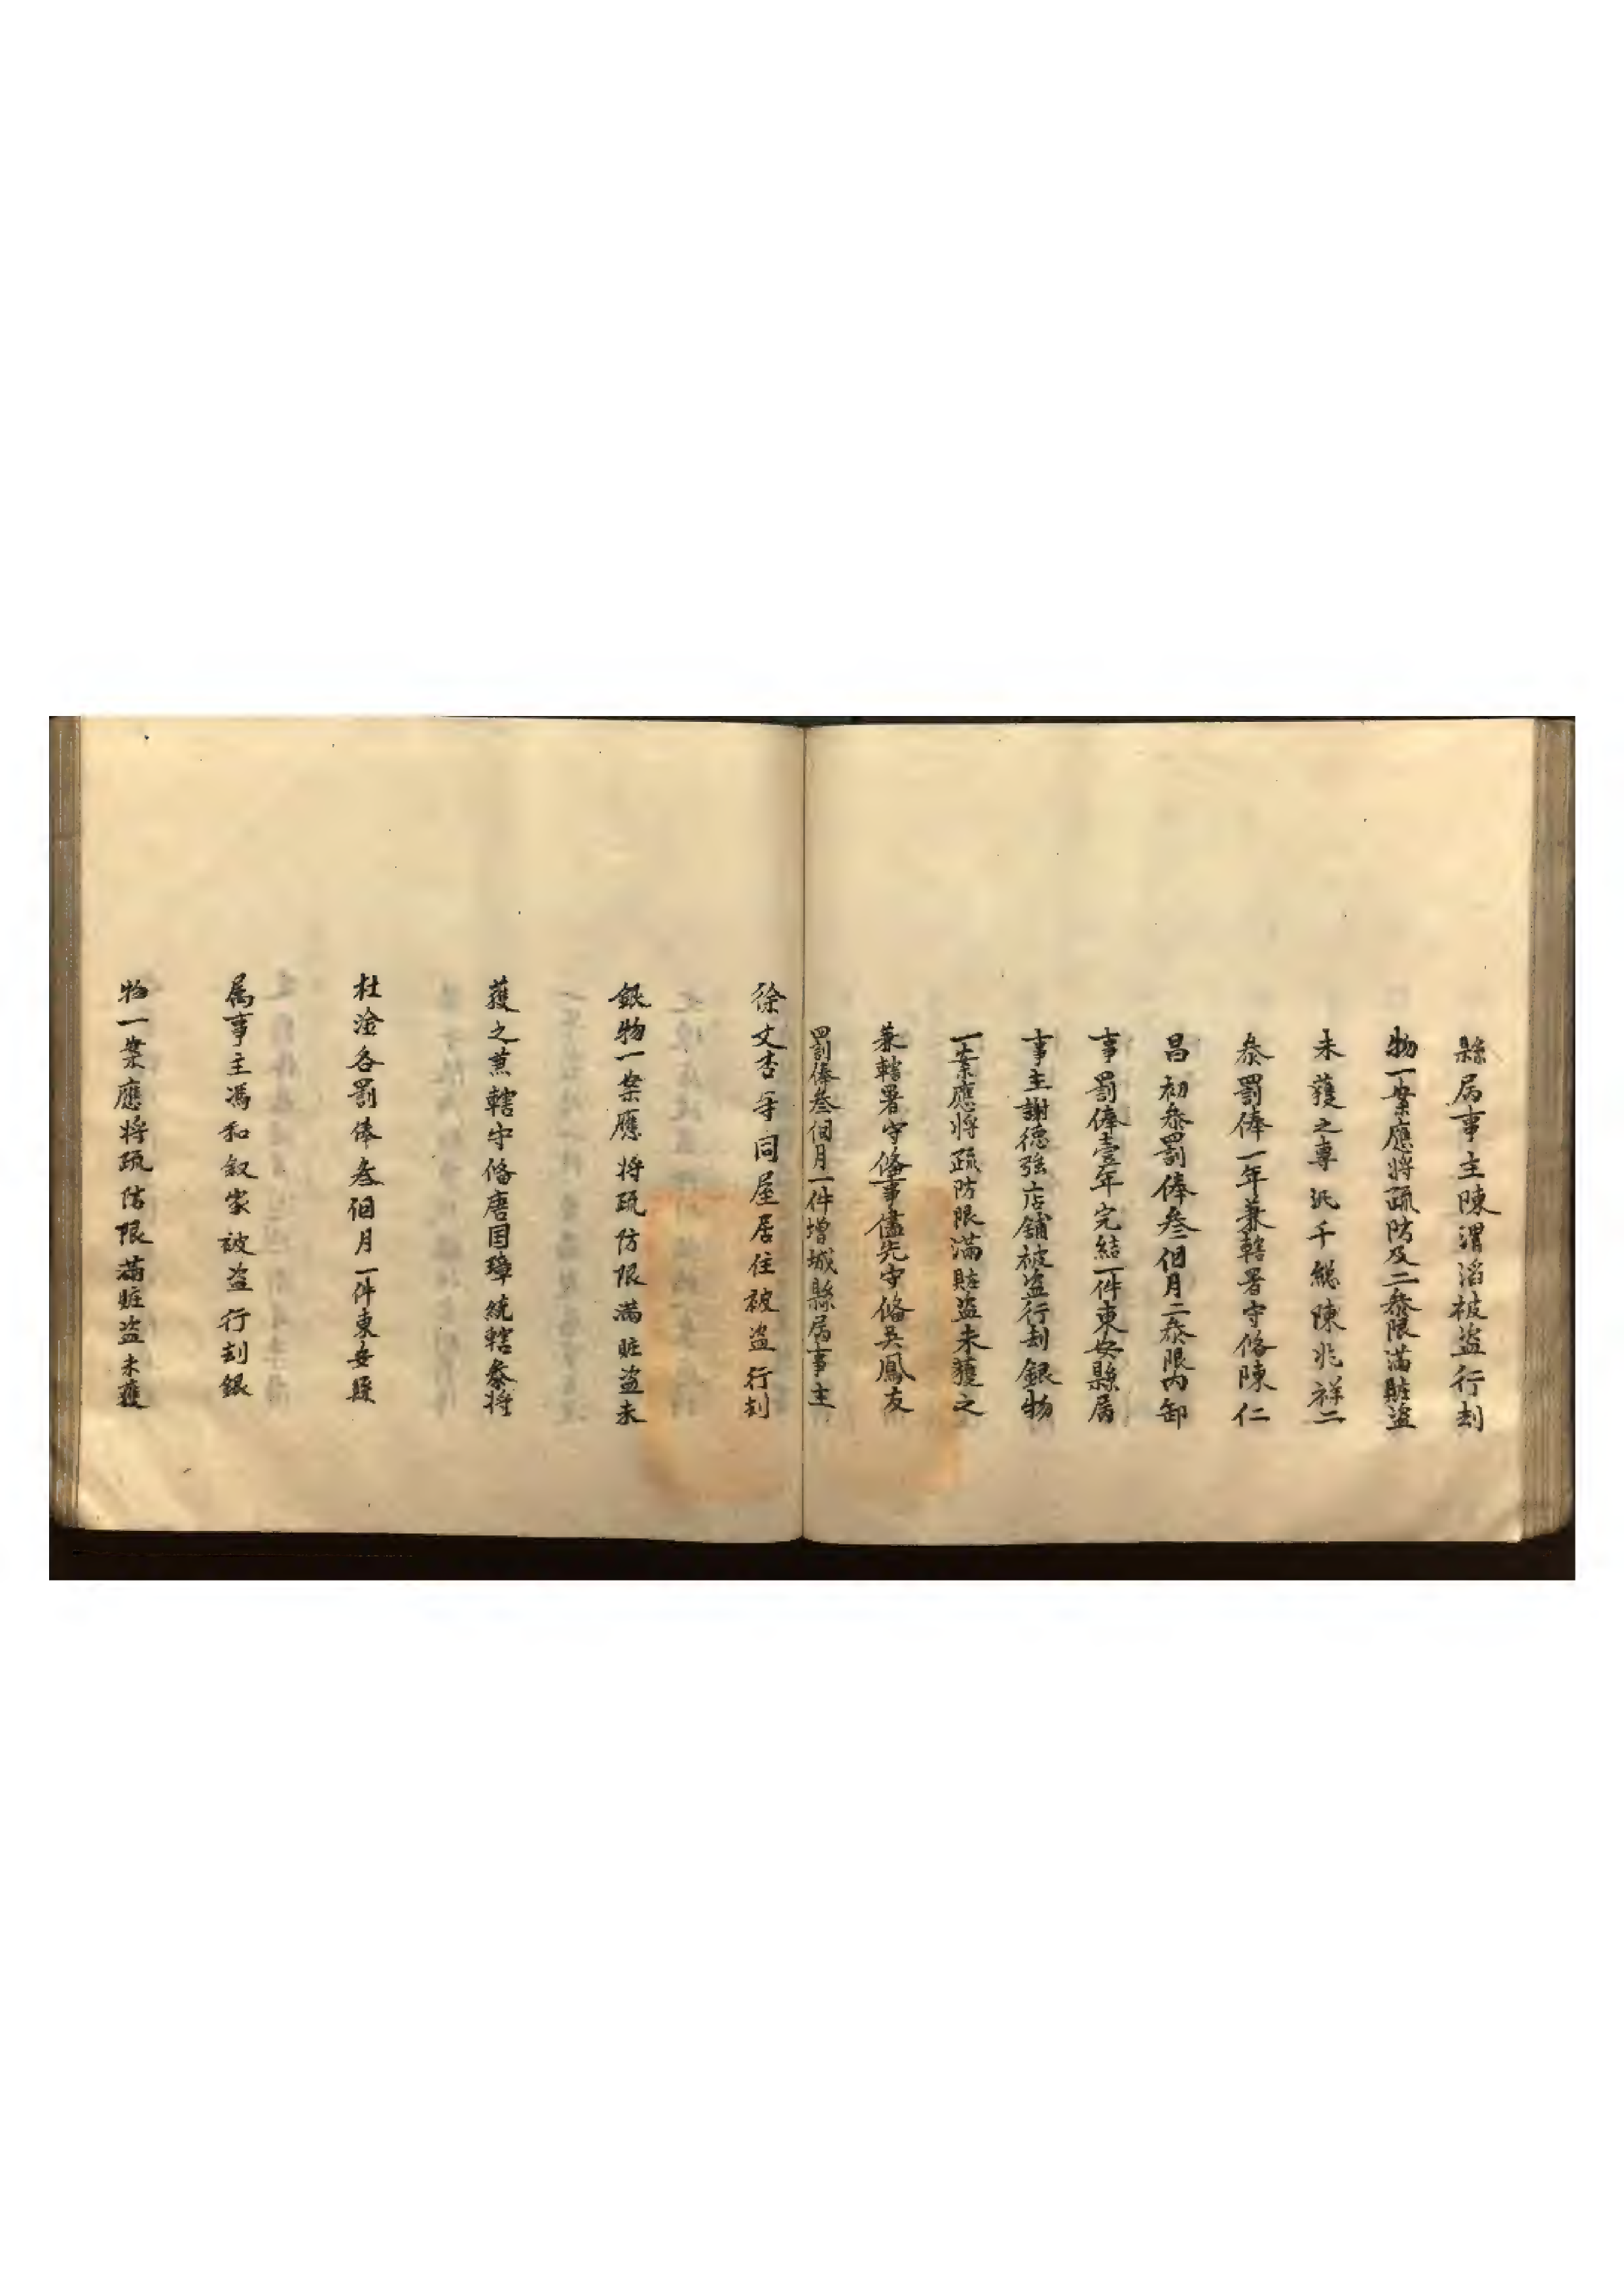 縣属事主陳渭滔被盗行刦
物一案應將疏防及二叅限滿賍盗
未獲之專汛千総陳兆祥二
叅罰俸一年兼轄署守俻陳仁
昌初叅罰俸叁個月二叅限内卸
事罰俸壹年完結一件東安縣属
事主謝德強店舖被盗行刦銀物
一案應將疏防限滿賍盗未獲之
兼轄署守俻事儘先守俻吳鳳友
罰俸叁個月一件增城縣属事主
徐文杏等同屋居住被盗行刦
銀物一案應将疏防限满賍盗未
獲之兼轄守俻唐国璋統轄叅将
杜淦各罰俸叁個月一件東安縣
属事主馮和叙家被盗行刦銀
物一案應将疏防限满賍盗未獲